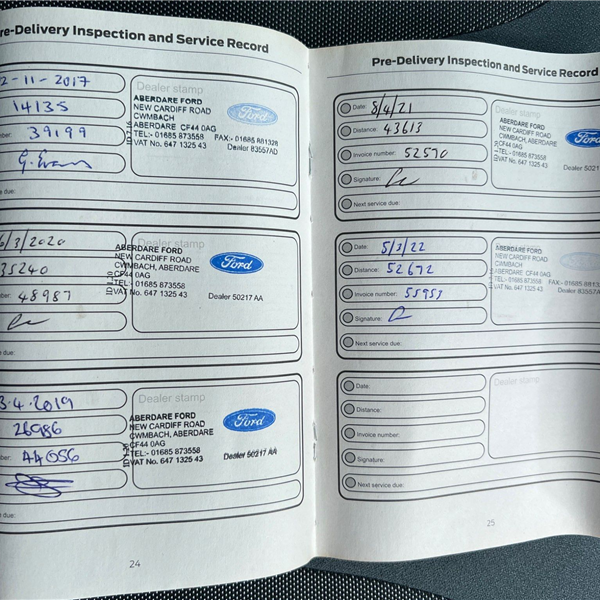 re-Delivery Inspection and Service Record
2-11-2017
14135
mber: 39199
G. Evans
e due:
Dealer stamp
ABERDARE FORD
NEW CARDIFF ROAD
CWMBACH
ABERDARE CF44 0AG
TEL:- 01685 873558 FAX:- 01685 881328
VAT No. 647 1325 43 Dealer 83557AD
Ford
6/3/2020
35240
ber: 48987
due:
Dealer stamp
ABERDARE FORD
NEW CARDIFF ROAD
CWMBACH, ABERDARE
CF44 0AG
TEL:- 01685 873558
VAT No. 647 1325 43
Dealer 50217 AA
Ford
3.4.2019
26986
ber: 44056
due:
Dealer stamp
ABERDARE FORD
NEW CARDIFF ROAD
CWMBACH, ABERDARE
CF44 0AG
TEL:- 01685 873558
VAT No. 647 1325 43
Dealer 50217 AA
Ford
24
Pre-Delivery Inspection and Service Record
Date: 8/4/21
Distance: 43613
Invoice number: 52570
Signature:
Next service due:
Dealer stamp
ABERDARE FORD
NEW CARDIFF ROAD
CWMBACH, ABERDARE
CF44 0AG
TEL:- 01685 873558
VAT No. 647 1325 43
Dealer 5021
Ford
Date: 5/3/22
Distance: 52672
Invoice number: 55953
Signature:
Next service due:
Dealer stamp
ABERDARE FORD
NEW CARDIFF ROAD
CWMBACH
ABERDARE CF44 0AG
TEL:- 01685 873558 FAX:- 01685 8813
VAT No. 647 1325 43 Dealer 83557A
Date:
Distance:
Invoice number:
Signature:
Next service due:
Dealer stamp
25